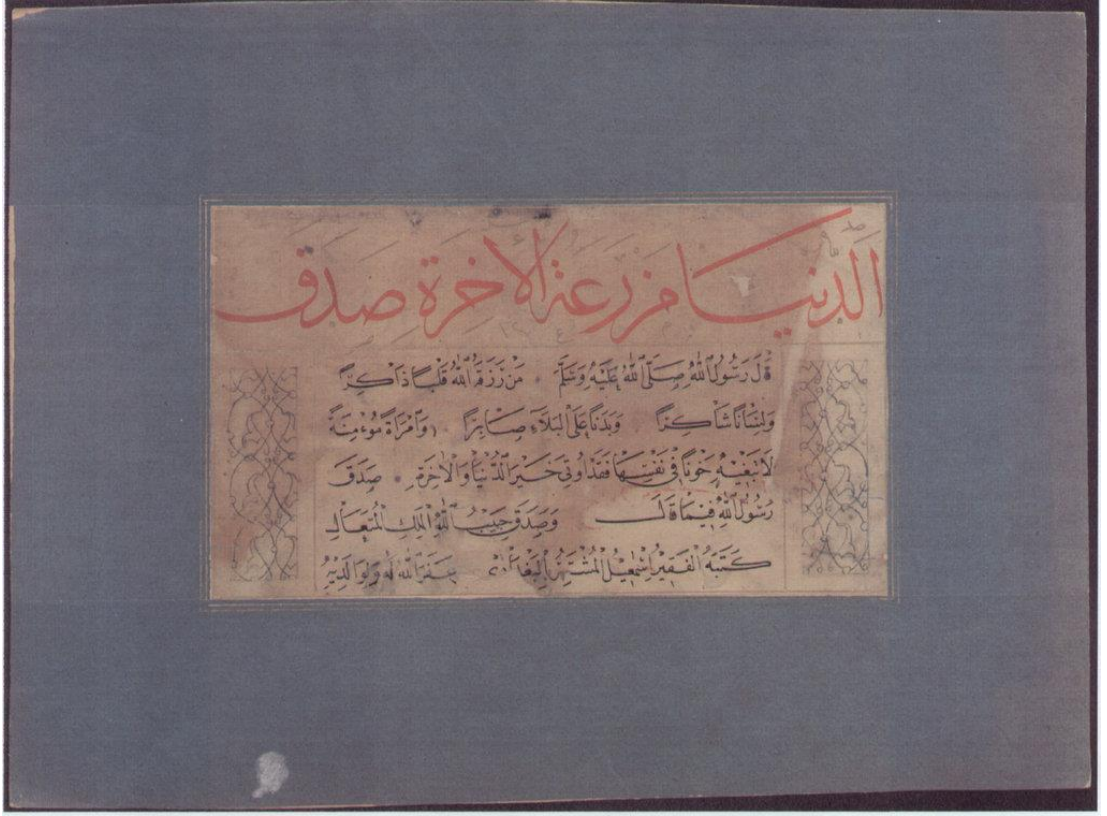 الدنيا مزرعة الأخرة صدق
قَالَ رَسُولُ اللهِ صَلَّى اللهُ عَلَيْهِ وَسَلَّمَ مَنْ رَزَقَهُ اللهُ قَلْبًا ذَاكِرًا
وَلِسَانًا شَاكِرًا وَبَدَنًا عَلَى الْبَلَاءِ صَابِرًا وَامْرَأَةً مُؤْمِنَةً
لَا تَبْغِيهِ خَوْنًا فِي نَفْسِهَا فَقَدْ أُوتِيَ خَيْرَ الدُّنْيَا وَالْآخِرَةِ صَدَقَ
رَسُولُ اللهِ فِيمَا قَالَ وَصَدَقَ حَبِيبُ اللهِ الْمَلِكِ الْمُتَعَالِ
كَتَبَهُ الْفَقِيرُ إِسْمٰعِيلُ الْمُشْتَهِرُ غَفَرَ اللهُ لَهُ وَلِوَالِدَيْهِ